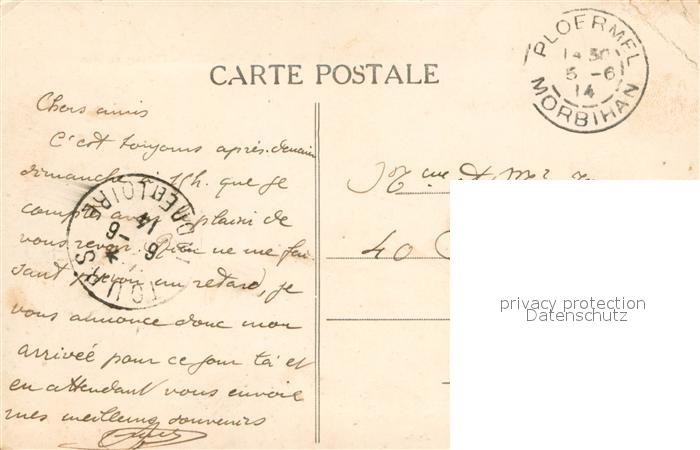 CARTE POSTALE
PLOERMEL
14 30
5 -6
14
MORBIHAN
Chers amis
C'est toujours après-demain
dimanche à 15h. que je
compte avoir le plaisir de
vous revoir. Rien ne me fai
sant prévoir un retard, je
vous annonce donc mon
arrivée pour ce jour là et
en attendant vous envoie
mes meilleurs souvenirs
TOURS
INDRE ET LOIRE
6 -6
14
et
40
privacy protection
Datenschutz